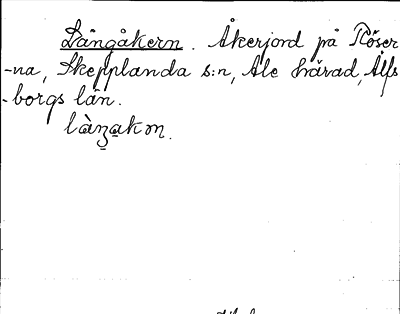 Långåkern. Åkerjord på Röser
-na, Skepplanda s:n, Ale härad, Älfs
-borgs län.